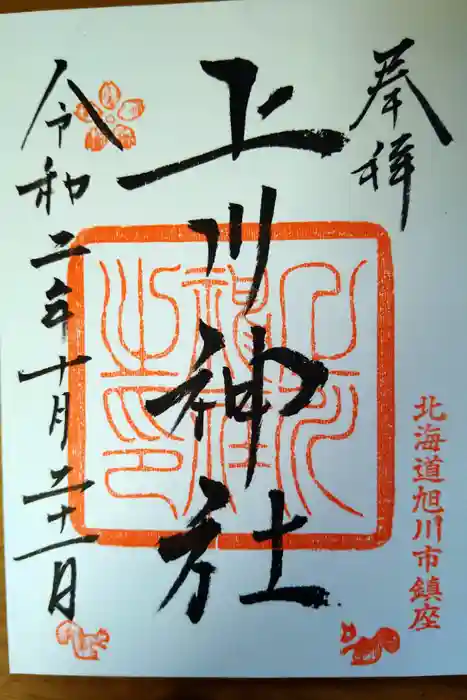 奉拝
北海道旭川市鎮座
上川神社
上川神社之印
令和二年十月二十一日